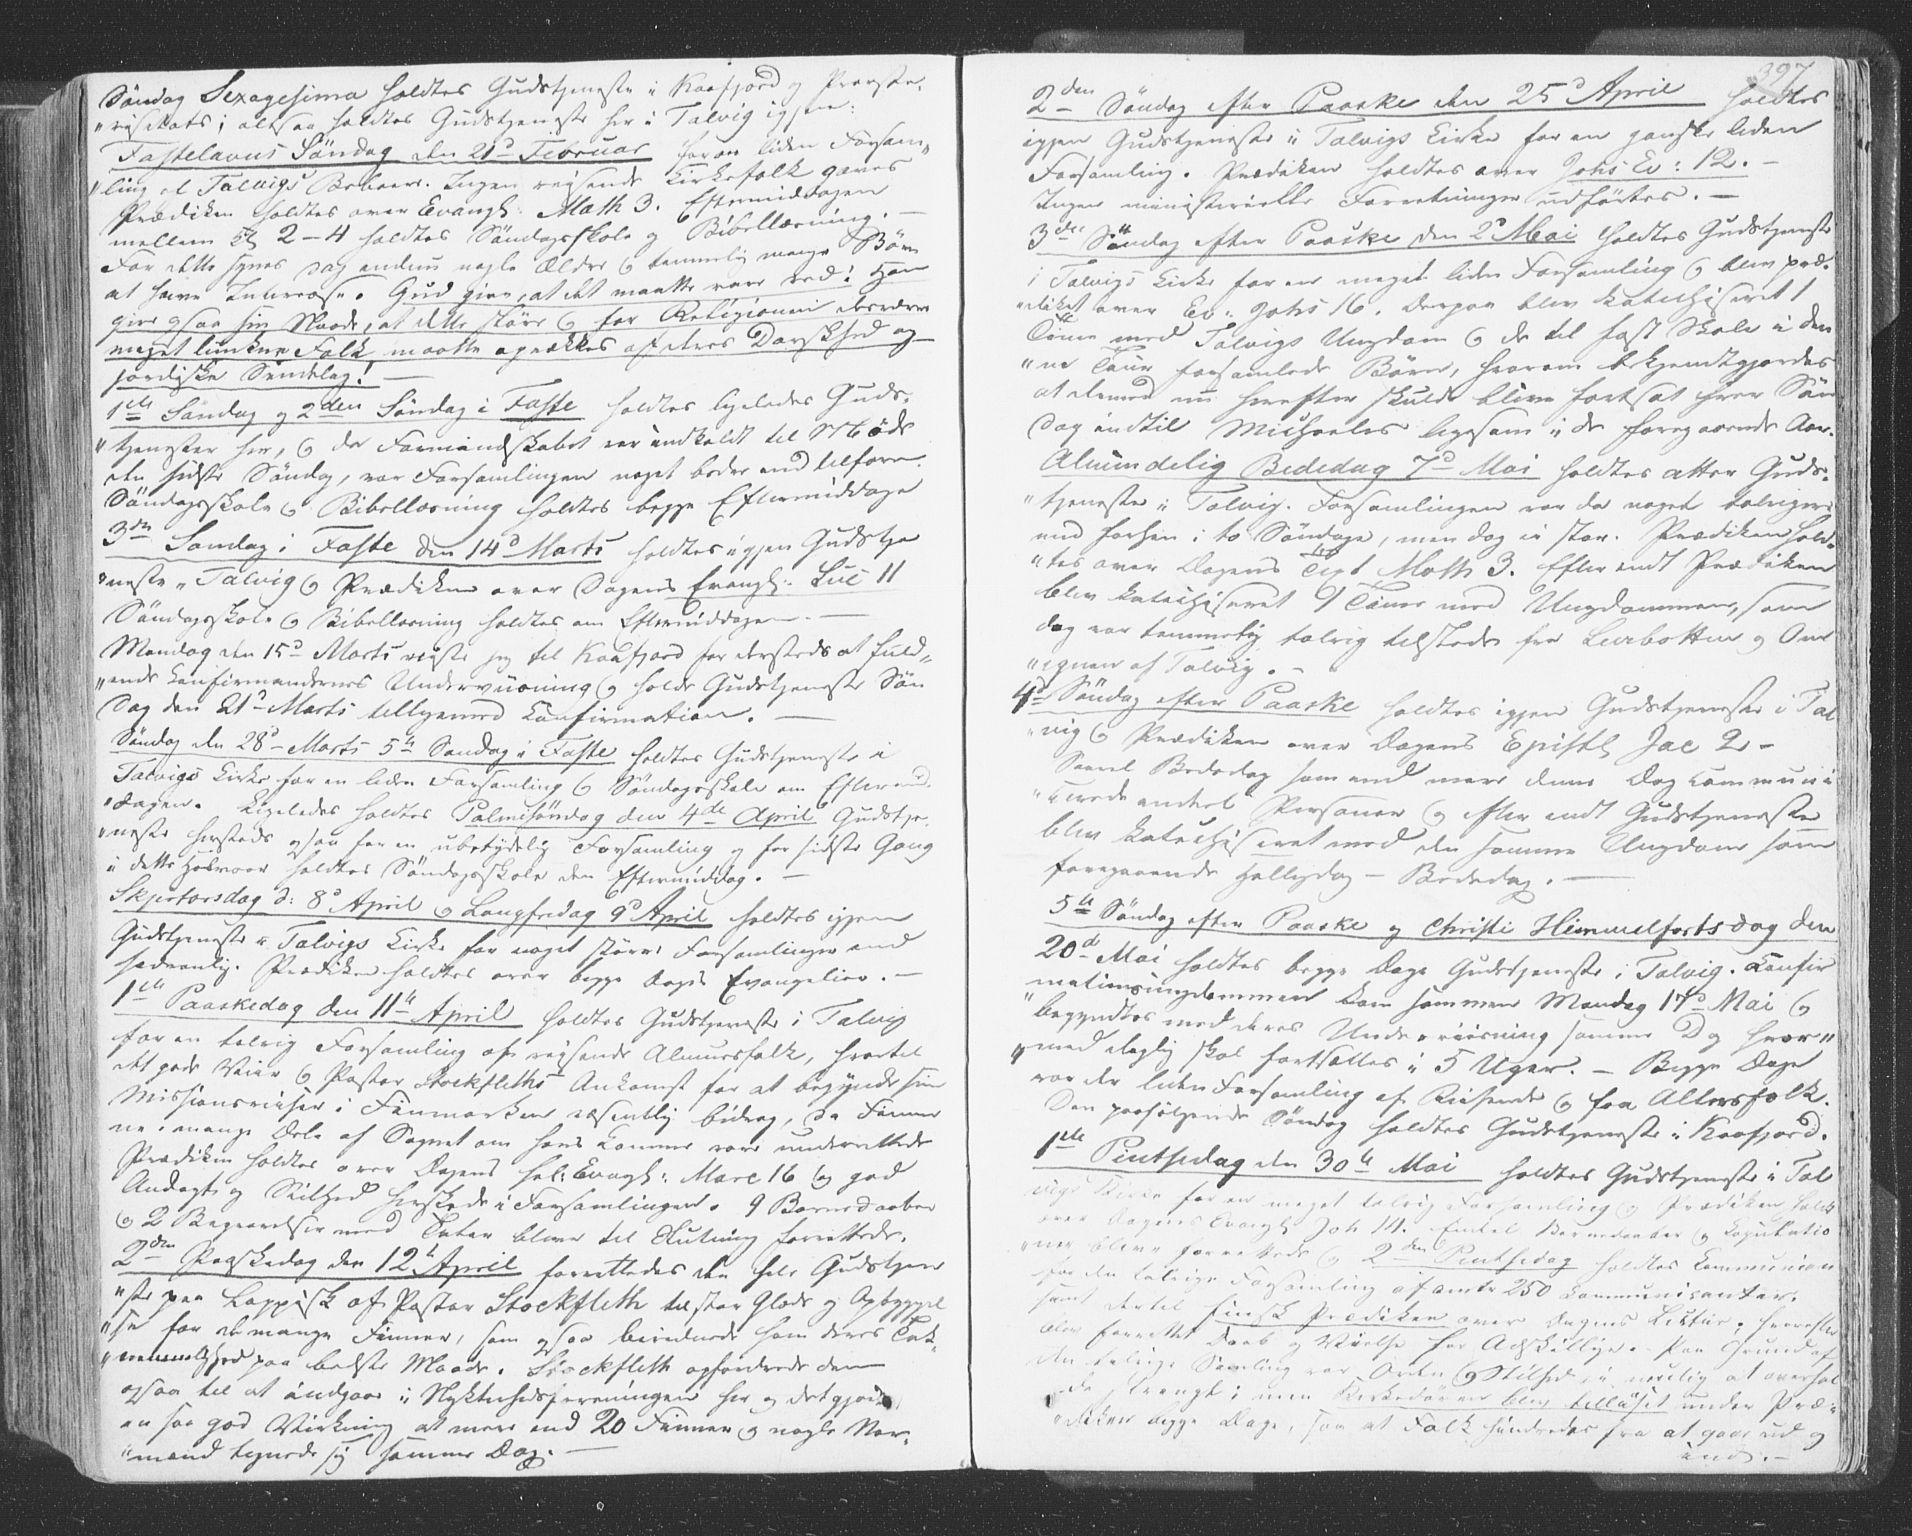 Søndag Sexagesima holdtes Gudstjeneste i Kaafjord og Provste-
"visitats; altsaa holdtes Gudstjeneste her i Talvig igjen
Fastelavns Søndag den 21d Februar for en liden Forsam"
"ling af Talvigs Beboere. Ingen reisende Kirkefolk gaves
Prædiken holdtes over Evangl: Math 3. Eftermiddagen
mellem Kl 2-4 holdtes Søndagsskole og Bibellæsning. —
For dette synes dog endnu nogle Ældre og temmelig mange Børn
at have Interesse. Gud give, at det maatte vare ved! Han
give ogsaa sin Naade, at dette større og for Religionen desværre
meget lunkne Folk maatte opvækkes af deres Dorskhed og
jordiske Sindelag! —
1ste Søndag og 2den Søndag i Faste holdtes ligeledes Guds-
"tjenester her, og da Formandskabet var indkaldt til Møde
den sidste Søndag, var Forsamlingen noget bedre end tilforn.
Søndagsskole og Bibellæsning holdtes begge Eftermiddage
3die Søndag i Faste den 14d Marts holdtes igjen Gudstje
"neste i Talvig og Prædiken over Dagens Evangl: Luc 11
Søndagsskole og Bibellæsning holdtes om Eftermiddagen. —
Mandag den 15d Marts reiste jeg til Kaafjord for dersteds at fuld"
"ende Confirmandernes Underviisning og holde Gudstjeneste Søn
dag den 21d Marts tilligemed Confirmation. —
Søndag den 28d Marts 5te Søndag i Faste holdtes Gudstjeneste i
Talvigs Kirke for en liden Forsamling og Søndagsskole om Eftermid-
"dagen. Ligeledes holdtes Palmesøndag den 4de April Gudstje-
"neste hersteds ogsaa for en ubetydelig Forsamling og for sidste Gang
i dette Halvaar holdtes Søndagsskole den Eftermiddag. —
Skjertorsdag d: 8d April og Langfredag 9d April holdtes igjen
Gudstjeneste i Talvigs Kirke for noget større Forsamlinger end
sædvanlig. Prædiken holdtes over begge Dages Evangelier. —
1ste Paaskedag den 11te April holdtes Gudstjeneste i Talvig
for en talrig Forsamling af reisende Almuesfolk, hvortil
det gode Veir og Pastor Stockfleths Ankomst for at begynde sine
Missionsreiser i Finmarken væsentlig bidrog, da Finner
ne i mange Dele af Sognet om hans Komme vare underrettede
Prædiken holdtes over Dagens hel: Evagl: Marc 16 og god
Andagt og Stilhed herskede i Forsamlingen. 9 Barnedaaber
og 2 Begravelser med Taler bleve til Slutning forrettede.
2den Paaskedag den 12te April forrettedes den hele Gudstjene
"ste paa Lappisk af Pastor Stockfleth til stor Glæde og Opbyggel
"se for de mange Finner, som ogsaa bevidnede ham deres Tak-
"nemmelighed paa bedste Maade. Stockfleth opfordrede dem
ogsaa til at indgaae i Nykterhedsforeningen her og det gjorde
en saa god Virkning at mere end 20 Finner og nogle Nor-
"mænd tegnede sig samme Dag. —
397
2den Søndag efter Paaske den 25d April holdtes
igjen Gudstjeneste i Talvigs Kirke for en ganske liden
Forsamling. Prædiken holdtes over Johs Ev: 12. —
Ingen ministerielle Forretninger udførtes. —
3die Søndag efter Paaske den 2d Mai holdtes Gudstjeneste
i Talvigs Kirke for en meget liden Forsamling og blev præ-
"diket over Ev: Johs 16. Derpaa blev katechiseret 1
Time med Talvigs Ungdom og de til fast Skole i den
"ne Tour forsamlede Børn, hvorom bekjendtgjordes
at dermed nu herefter skulde blive fortsat hver Søn
dag indtil Michaelis ligesom i de foregaaende Aar.
Almindelig Bededag 7d Mai holdtes atter Guds-
"tjeneste i Talvig. Forsamlingen var da noget talrigere
end forhen i to Søndage, men dog ei stor. Prædiken hold-
"tes over Dagens Text Math 3. Efter endt Prædiken
blev katechiseret 1 Time med Ungdommen, som
dog var temmelig talrig tilstede fra Leerbotten og Om
"egnen af Talvig. —
4d Søndag efter Paaske holdtes igjen Gudstjeneste i Tal
"vig og Prædiken over Dagens Epistl Jac 2 —
Saavel Bededag som end mere denne Dag communi
"cerede endeel Personer og efter endt Gudstjeneste
blev katechiseret med den samme Ungdom som
foregaaende Helligdag — Bededag. —
5te Søndag efter Paaske og Christi Himmelfartsdag den
20d Mai holdtes begge Dage Gudstjeneste i Talvig. Confir
mationsungdommen kom sammen Mandag 17d Mai og
"begyndtes med deres Underviisning samme Dag hvor"
"med daglig skal fortsættes i 5 Uger. — Begge Dage
var der liden Forsamling af Reisende og fra Altensfolk.
Den paafølgende Søndag holdtes Gudstjeneste i Kaafjord.
1ste Pintsedag den 30te Mai holdtes Gudstjeneste i Tal
vigs Kirke for en meget talrig Forsamling og Prædiken holdt
over Dagens Evangl Joh 14. Endel Barnedaaber og Copulatio
"ner bleve forrettede og 2den Pintsedag holdtes Communion
for den talrige Forsamling af omtr 250 Communicanter.
samt dertil finsk Prædiken over Dagens Lectie; hvorefter
blev forrettet Daab og Vielse for Adskillige. Paa Grund af
den talrige Samling var Orden og Stilhed ei muelig at overhol
"de strengt; men Kirkedøren blev tillaaset under Præ-
"diken begge Dage, saa at Folk hindredes fra at gaae ud og
ind. —